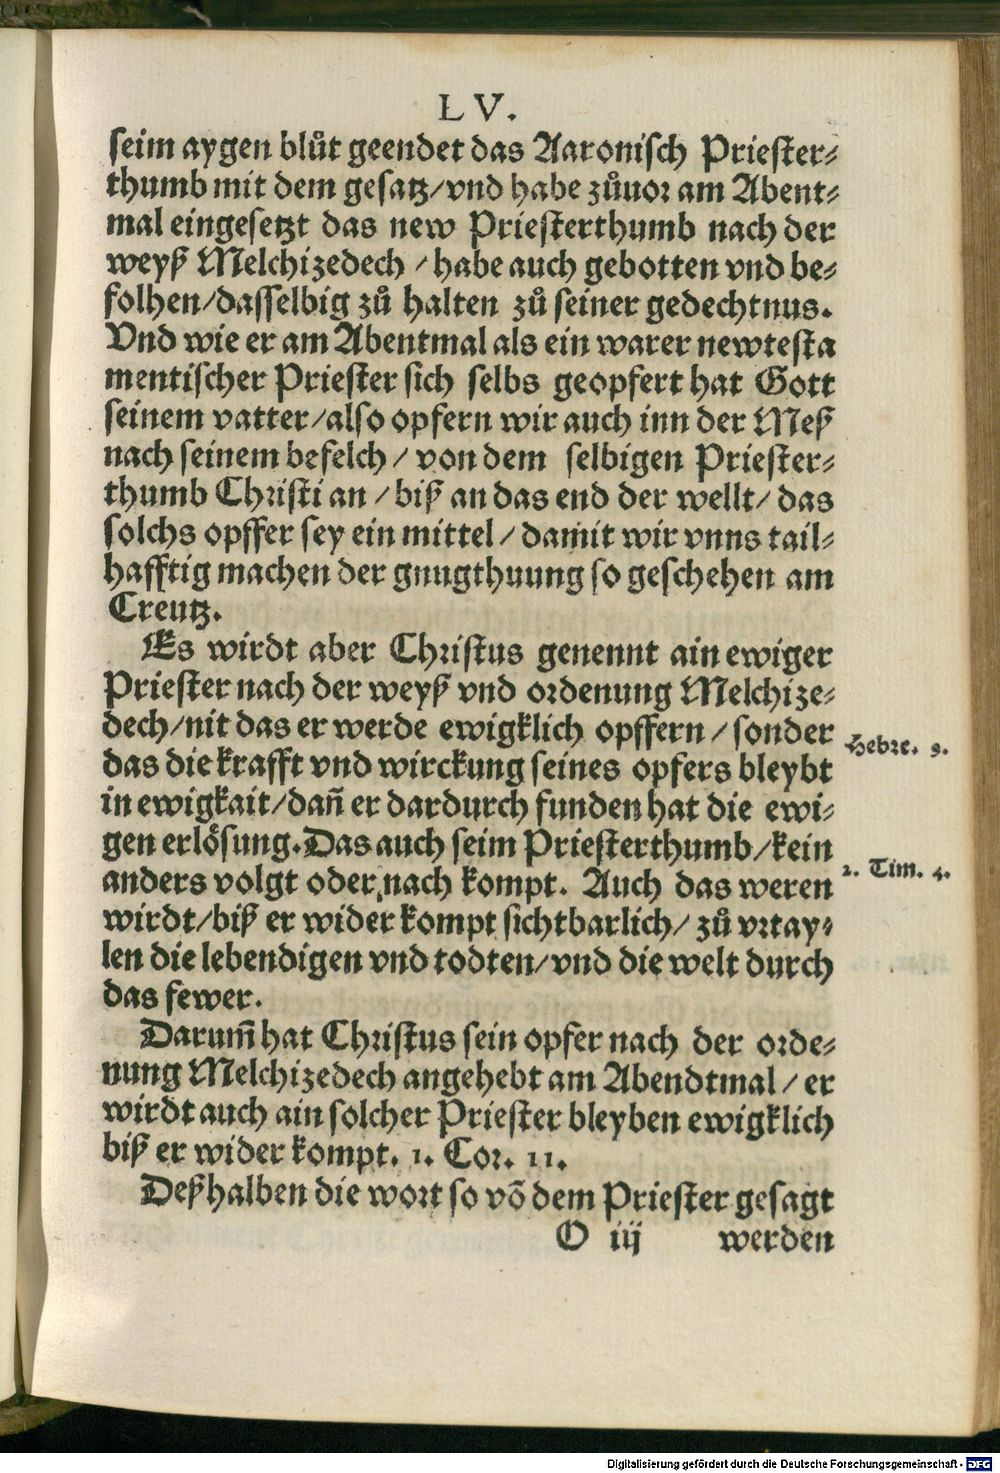 LV.
seim aygen blůt geendet das Aaronisch Priester⸗
thumb mit dem gesatz/vnd habe zůuor am Abent⸗
mal eingesetzt das new Priesterthumb nach der
weyß Melchizedech /habe auch gebotten vnd be⸗
folhen/dasselbig zů halten zů seiner gedechtnus.
Vnd wie er am Abentmal als ein warer newtesta
mentischer Priester sich selbs geopfert hat Gott
seinem vatter/also opfern wir auch inn der Meß
nach seinem befelch/ von dem selbigen Priester⸗
thumb Christi an /biß an das end der wellt/ das
solchs opffer sey ein mittel/ damit wir vnns tail⸗
hafftig machen der gnugthuung so geschehen am
Creutz.
Es wirdt aber Christus genennt ain ewiger
Priester nach der weyß vnd ordenung Melchize⸗
dech/nit das er werde ewigklich opffern/ sonder
das die krafft vnd wirckung seines opfers bleybt
Hebre. 9.
in ewigkait/dañ er dardurch funden hat die ewi⸗
gen erlösung. Das auch seim Priesterthumb/kein
anders volgt oder nach kompt. Auch das weren
2. Tim. 4.
wirdt/biß er wider kompt sichtbarlich/ zů vrtay⸗
len die lebendigen vnd todten/vnd die welt durch
das fewer.
Darum̃ hat Christus sein opfer nach der orde⸗
nung Melchizedech angehebt am Abendtmal/ er
wirdt auch ain solcher Priester bleyben ewigklich
biß er wider kompt. 1. Cor. 11.
Deßhalben die wort so võ dem Priester gesagt
O iij werden
Digitalisierung gefördert durch die Deutsche Forschungsgemeinschaft - DFG